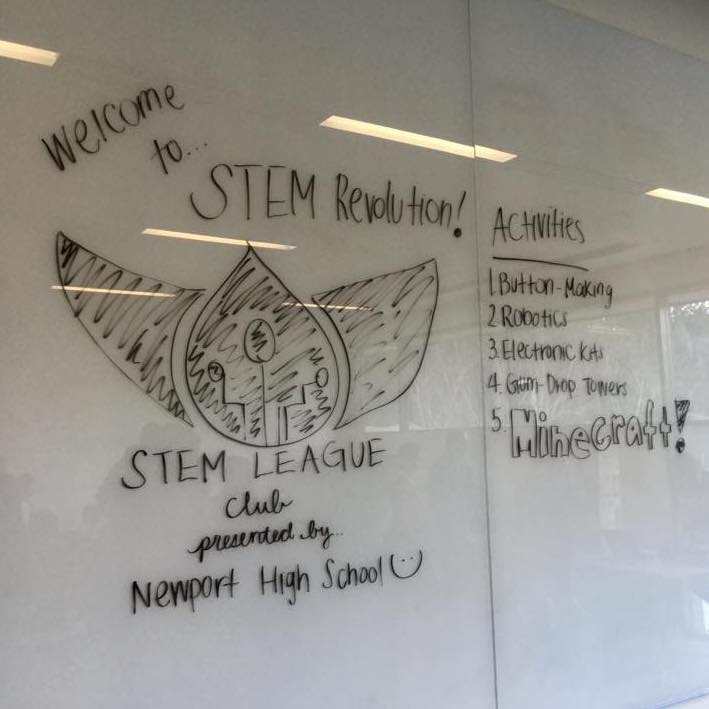 Welcome
to...
STEM Revolution!
STEM LEAGUE
Club
presented by...
Newport High School
Activities
1. Button-Making
2. Robotics
3. Electronic Kits
4. Gum-Drop Towers
5. Minecraft!